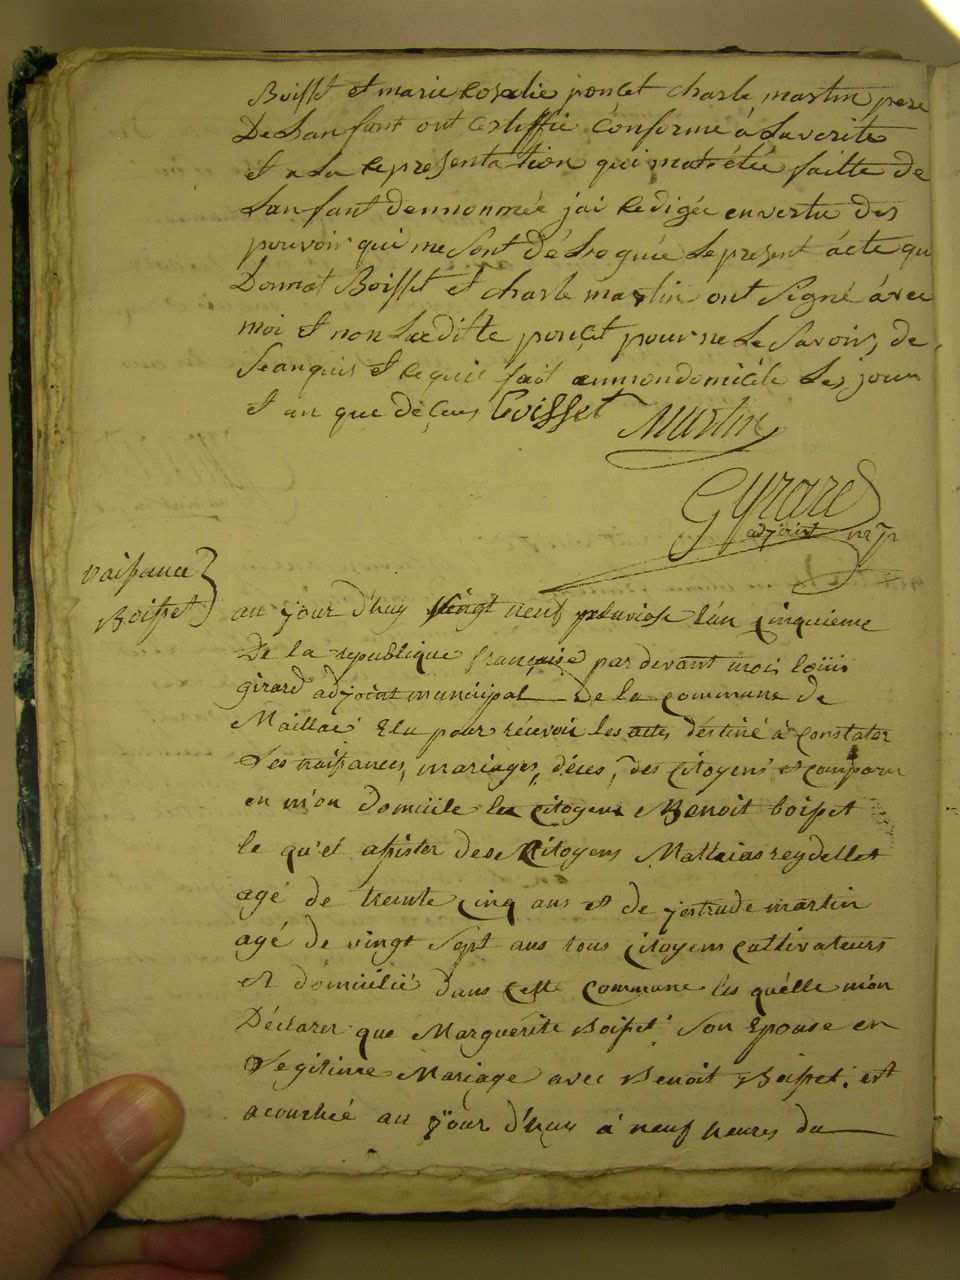 Boisset et marie Rosalie poncet charle martin pere
De Lanfant ont certiffié conforme à La verite
Et a La representation qui mat étée faitte de
Lanfant dennonmée jai Redigée en vertu des
pouvoir qui me Sont déLeguée Le present ácte qu
Donnet Boisset Et charle martin ont Signé ávec
moi Et non Ladditte poncet pour ne Le Savoir, de
Se anquis Et Requis fait ammon domicile Les jour
Et an que déçeus Boisset Martin
Gyrard
adjoint mp
naissance
Boisset
au jour d'huy vingt neuf pluviose l'an cinquieme
De la republique française par devant moi loüis
girard adjoint municipal De la commune de
Maillac Elu pour récevoir les actes déstiné à constater
Les naissances, mariages, déces, des citoyens et comparu
en m'on domicile le citoyens Benoit boisset
le qu'el assister des Citoyens Mathias reydellet
agé de trente cinq ans et de jestrude martin
agé de vingt Sept ans tous citoyens cultivateurs
et domicilié dans cette commune les quélle m'on
Déclarer que Marguérite Boisset Son Epouse en
Legitime Mariage avec Benoit Boisset est
acouchée au jour d'huy à neuf heures du